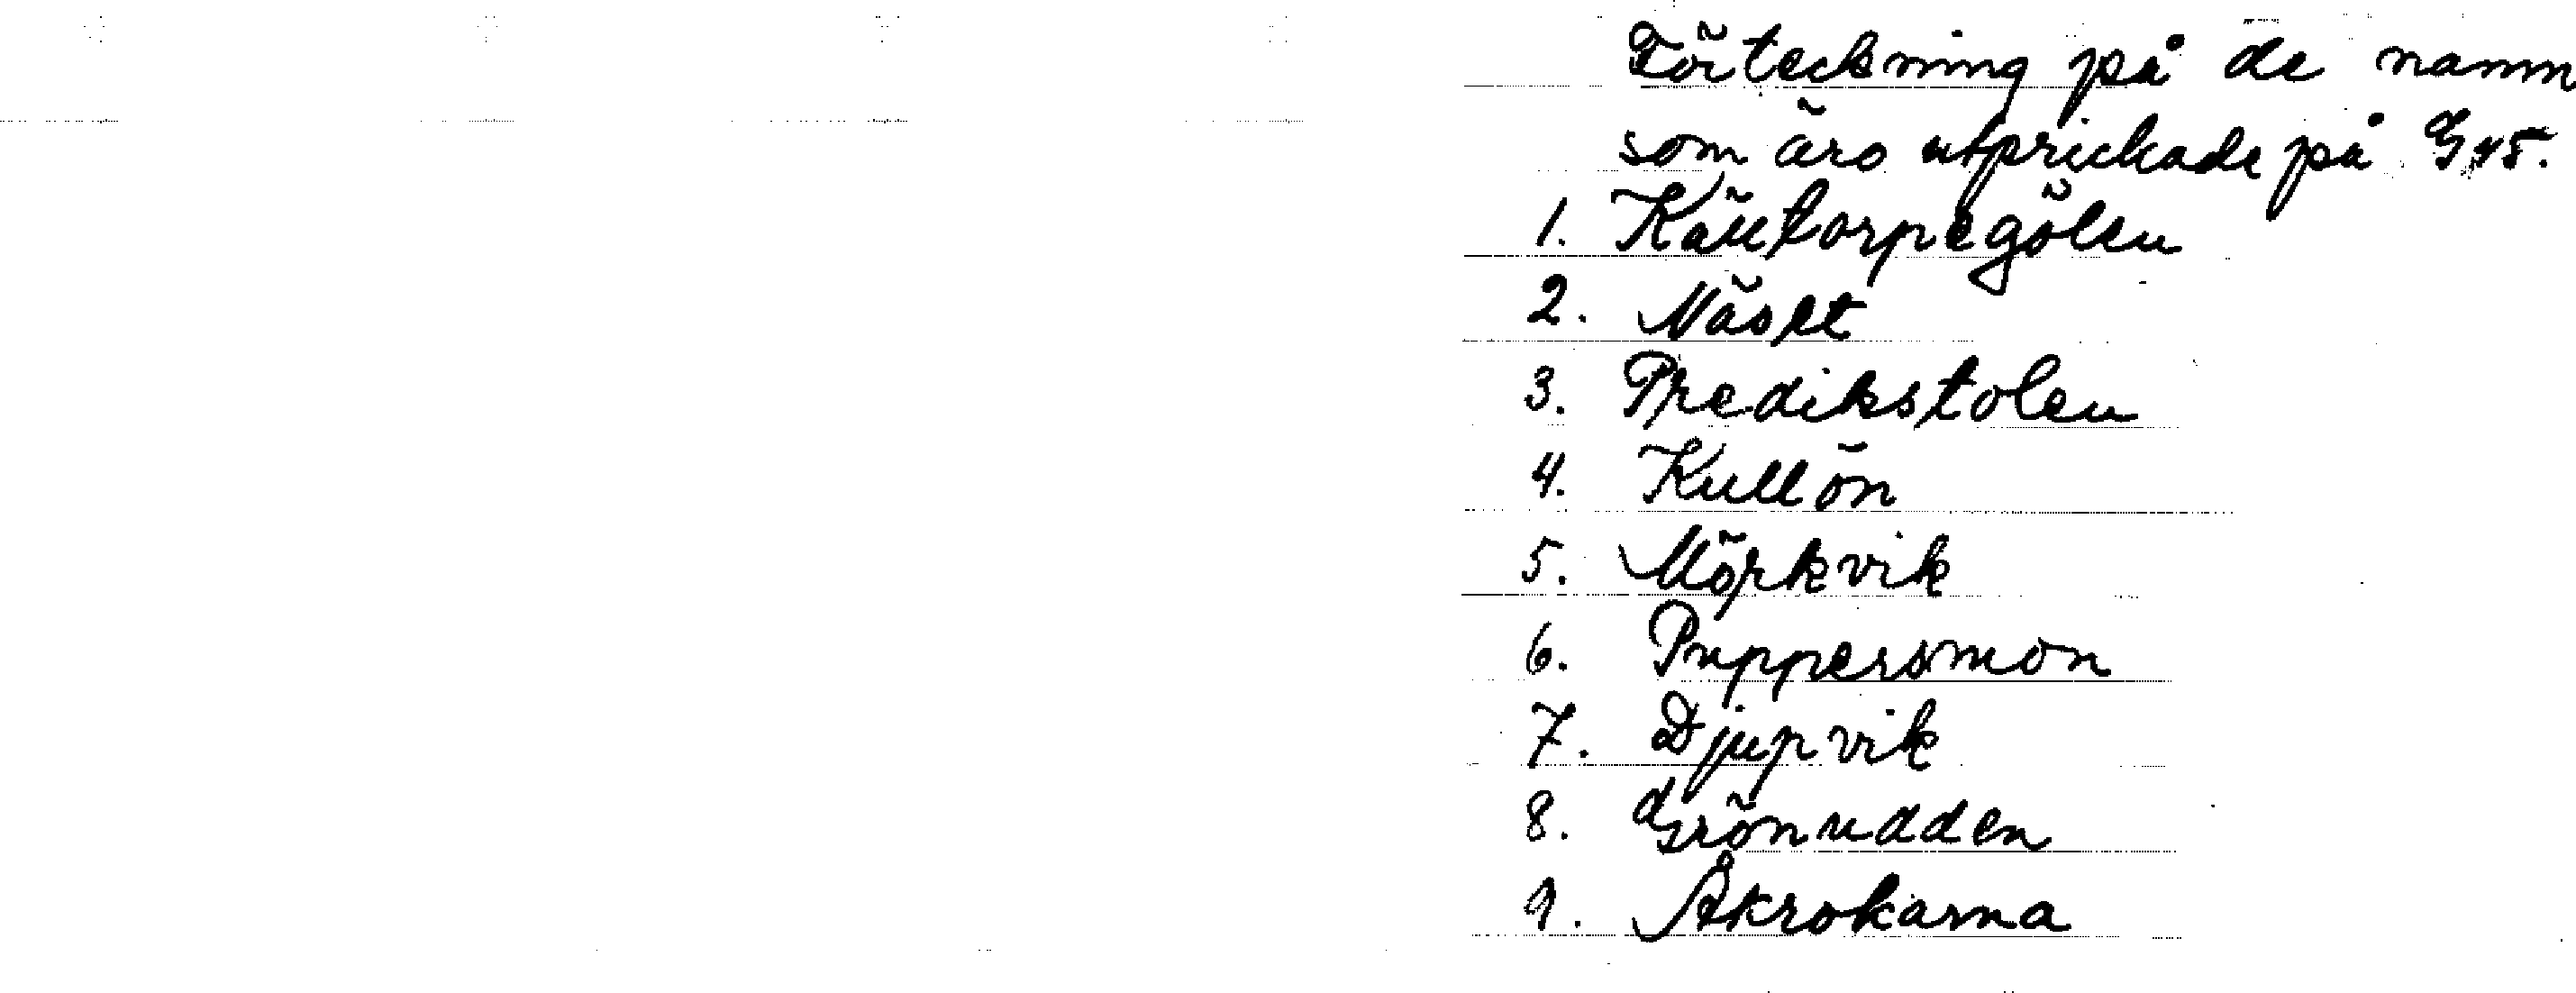 Förteckning på de namn
som äro utprickade på G45.
1. Källtorpegölen
2. Näset
3. Predikstolen
4. Kullön
5. Mörkvik
6. Puppersmon
7. Djupvik
8. Grönudden
9. Åkrokarna